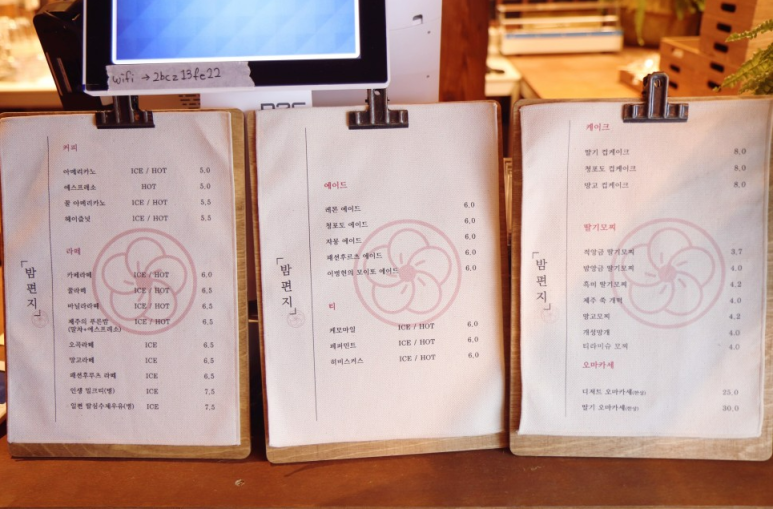 wifi → 2bcz13fe22
커피
아메리카노 ICE / HOT 5.0
에스프레소 HOT 5.0
꿀 아메리카노 ICE / HOT 5.5
헤이즐넛 ICE / HOT 5.5
라떼
카페라떼 ICE / HOT 6.0
꿀라떼 ICE / HOT 6.5
바닐라라떼 ICE / HOT 6.5
제주의 푸른밤 ICE / HOT 6.5
(말차+에스프레소)
오곡라떼 ICE 6.5
망고라떼 ICE 6.5
패션후루츠 라떼 ICE 6.5
인생 밀크티(병) ICE 7.5
일편 딸실수제우유(병) ICE 7.5
「밤편지」
에이드
레몬 에이드 6.0
청포도 에이드 6.0
자몽 에이드 6.0
패션후루츠 에이드 6.0
이병헌의 모이토 에이드 6.0
티
케모마일 ICE / HOT 6.0
페퍼민트 ICE / HOT 6.0
히비스커스 ICE / HOT 6.0
「밤편지」
케이크
딸기 컵케이크 8.0
청포도 컵케이크 8.0
망고 컵케이크 8.0
딸기모찌
적앙금 딸기모찌 3.7
밤앙금 딸기모찌 4.0
흑미 딸기모찌 4.2
제주 쑥 개떡 4.0
망고모찌 4.2
개성망개 4.0
티라미슈 모찌 4.0
오마카세
디저트 오마카세 25.0
딸기 오마카세 30.0
「밤편지」